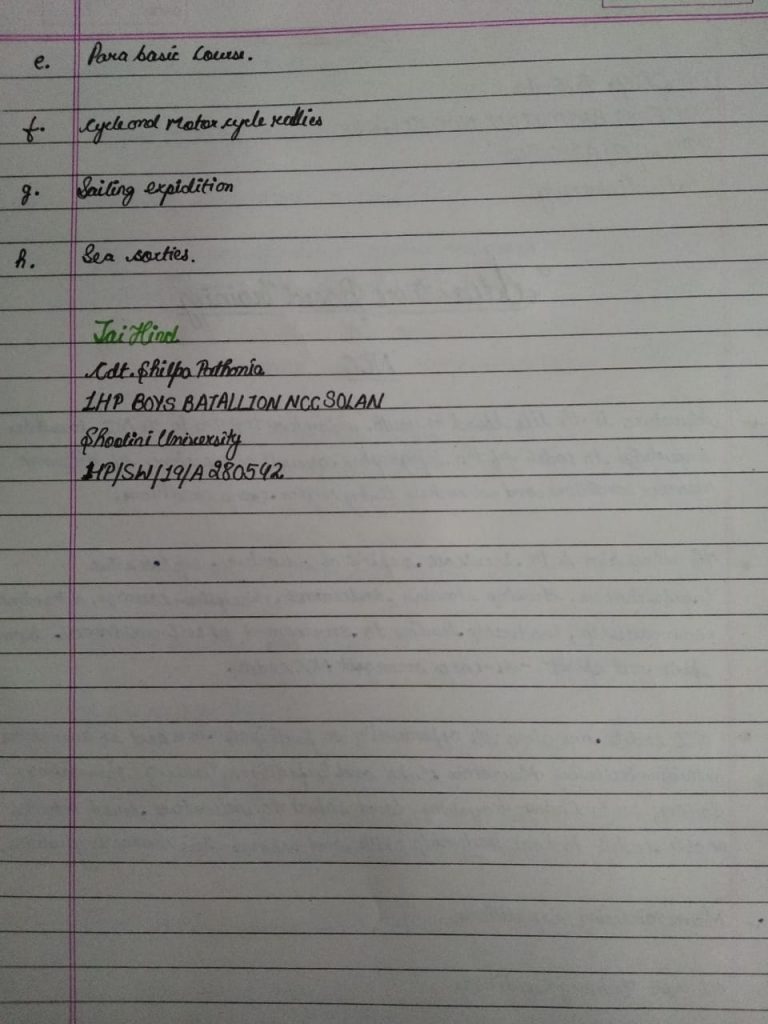 e. Para basic Course.
f. Cycle and Motor cycle rallies
g. Sailing expidition
h. Sea sorties.
Jai Hind
Cdt. Shilpa
1HP BOYS BATALLION NCC SOLAN
Shoolini University
HP/SW/19/A 280542